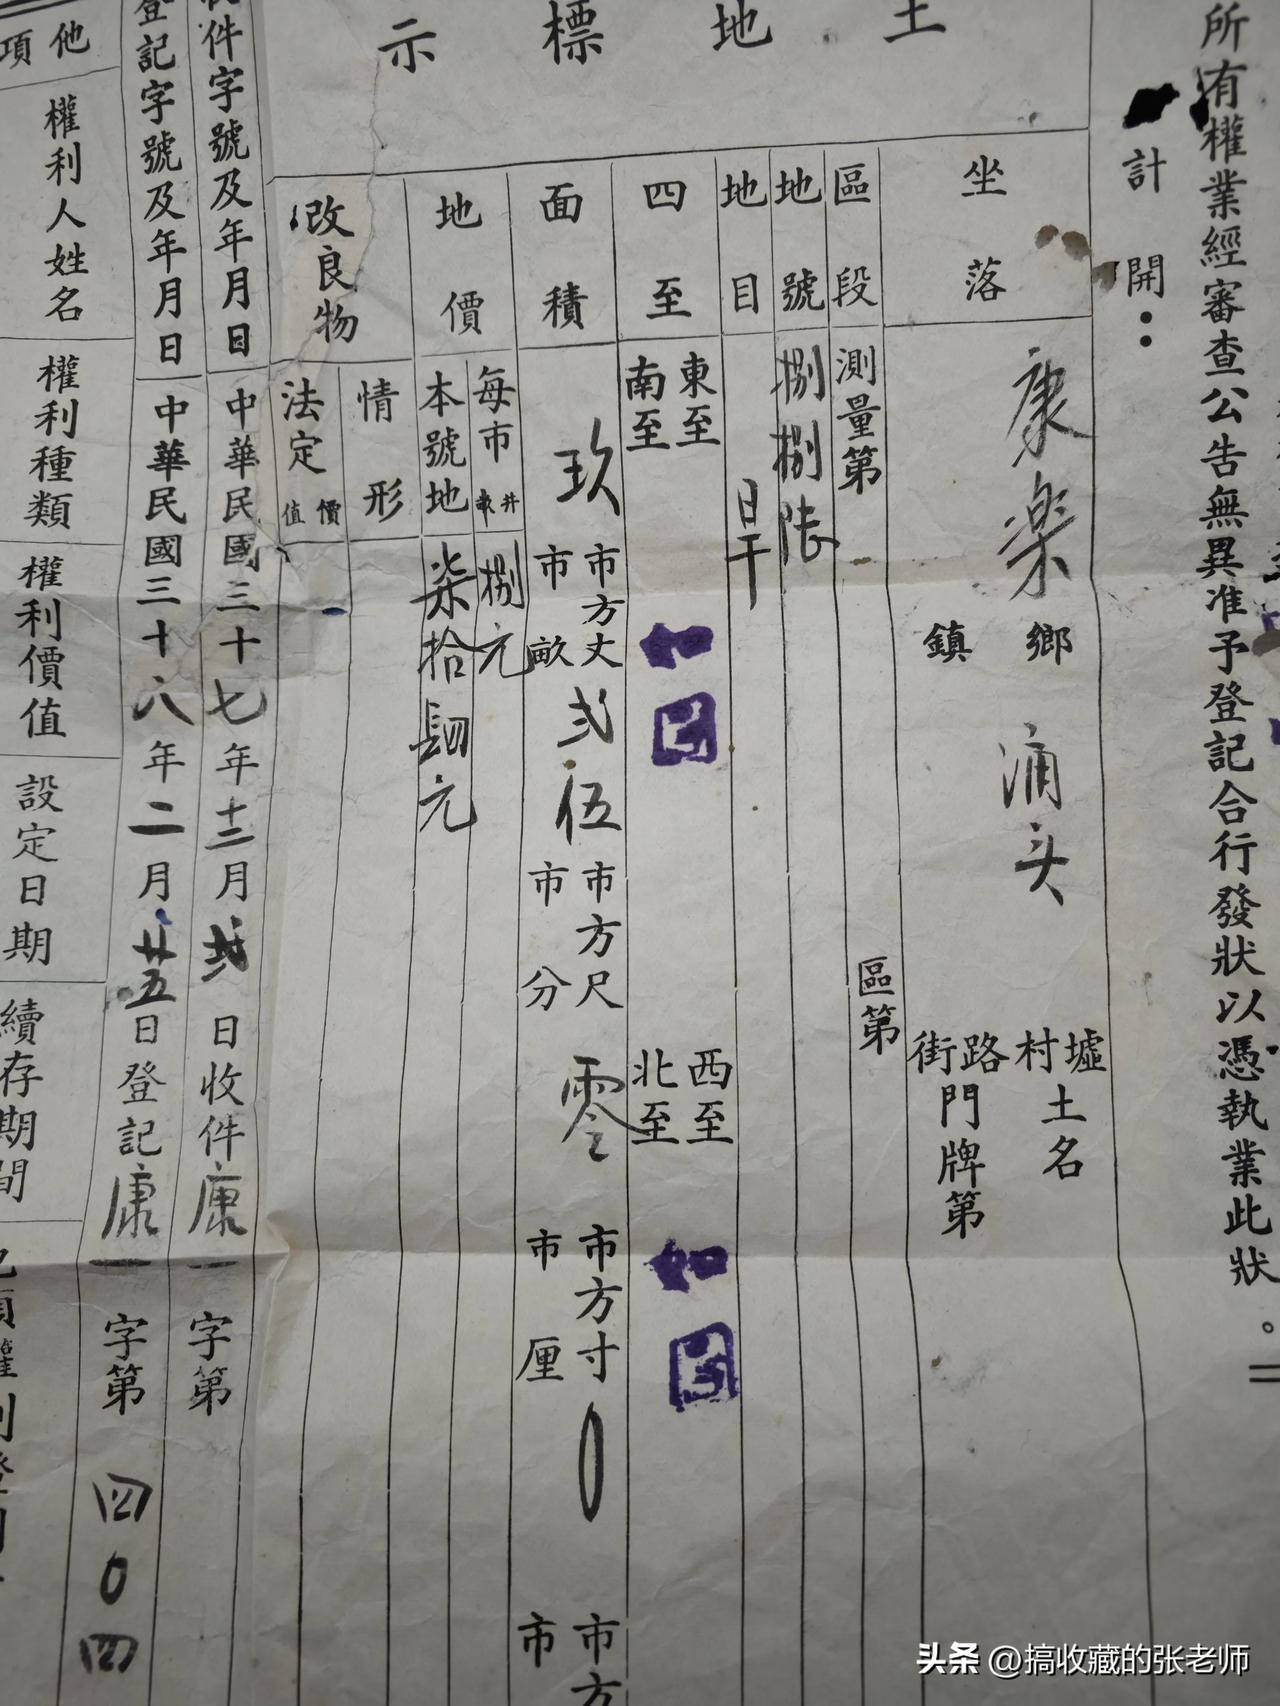 所有權業經審查公告無異准予登記合行發狀以憑執業此狀。
計開：
土地標示
坐落
康樂鄉鎮
涌头
村墟土名
街路門牌第
區段
測量第
區第
地號
捌捌陆
地目
旱
四至
東至
南至
如图
西至
北至
如图
面積
玖市方丈
市畝
弍伍市方尺
市分
零市方寸
市厘
0市方
市
地價
每市井畝
捌元
本號地
柒拾肆元
改良物
情形
法定價值
收件字號及年月日
中華民國三十七年十二月弍日收件康一字第
登記字號及年月日
中華民國三十八年二月廿五日登記康一字第四0四
他項
權利人姓名
權利種類
權利價值
設定日期
續存期間
头条 @搞收藏的张老师